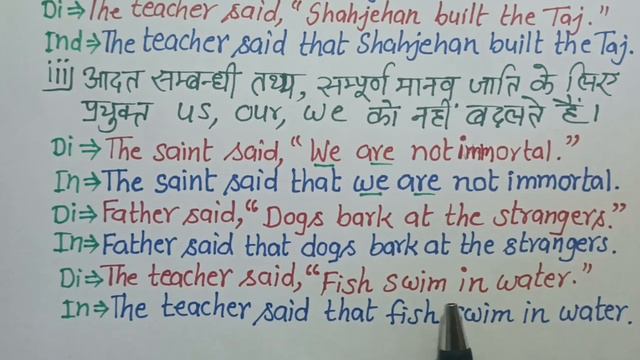 Di⇒The teacher said, "Shahjehan built the Taj."
Ind⇒The teacher said that Shahjehan built the Taj.
iii) आदत सम्बन्धी तथ्य, सम्पूर्ण मानव जाति के लिए
प्रयुक्त us, our, we को नहीं बदलते हैं।
Di⇒The saint said, "We are not immortal."
In⇒The saint said that we are not immortal.
Di⇒Father said, "Dogs bark at the strangers."
In⇒Father said that dogs bark at the strangers.
Di⇒The teacher said, "Fish swim in water."
In⇒The teacher said that fish swim in water.